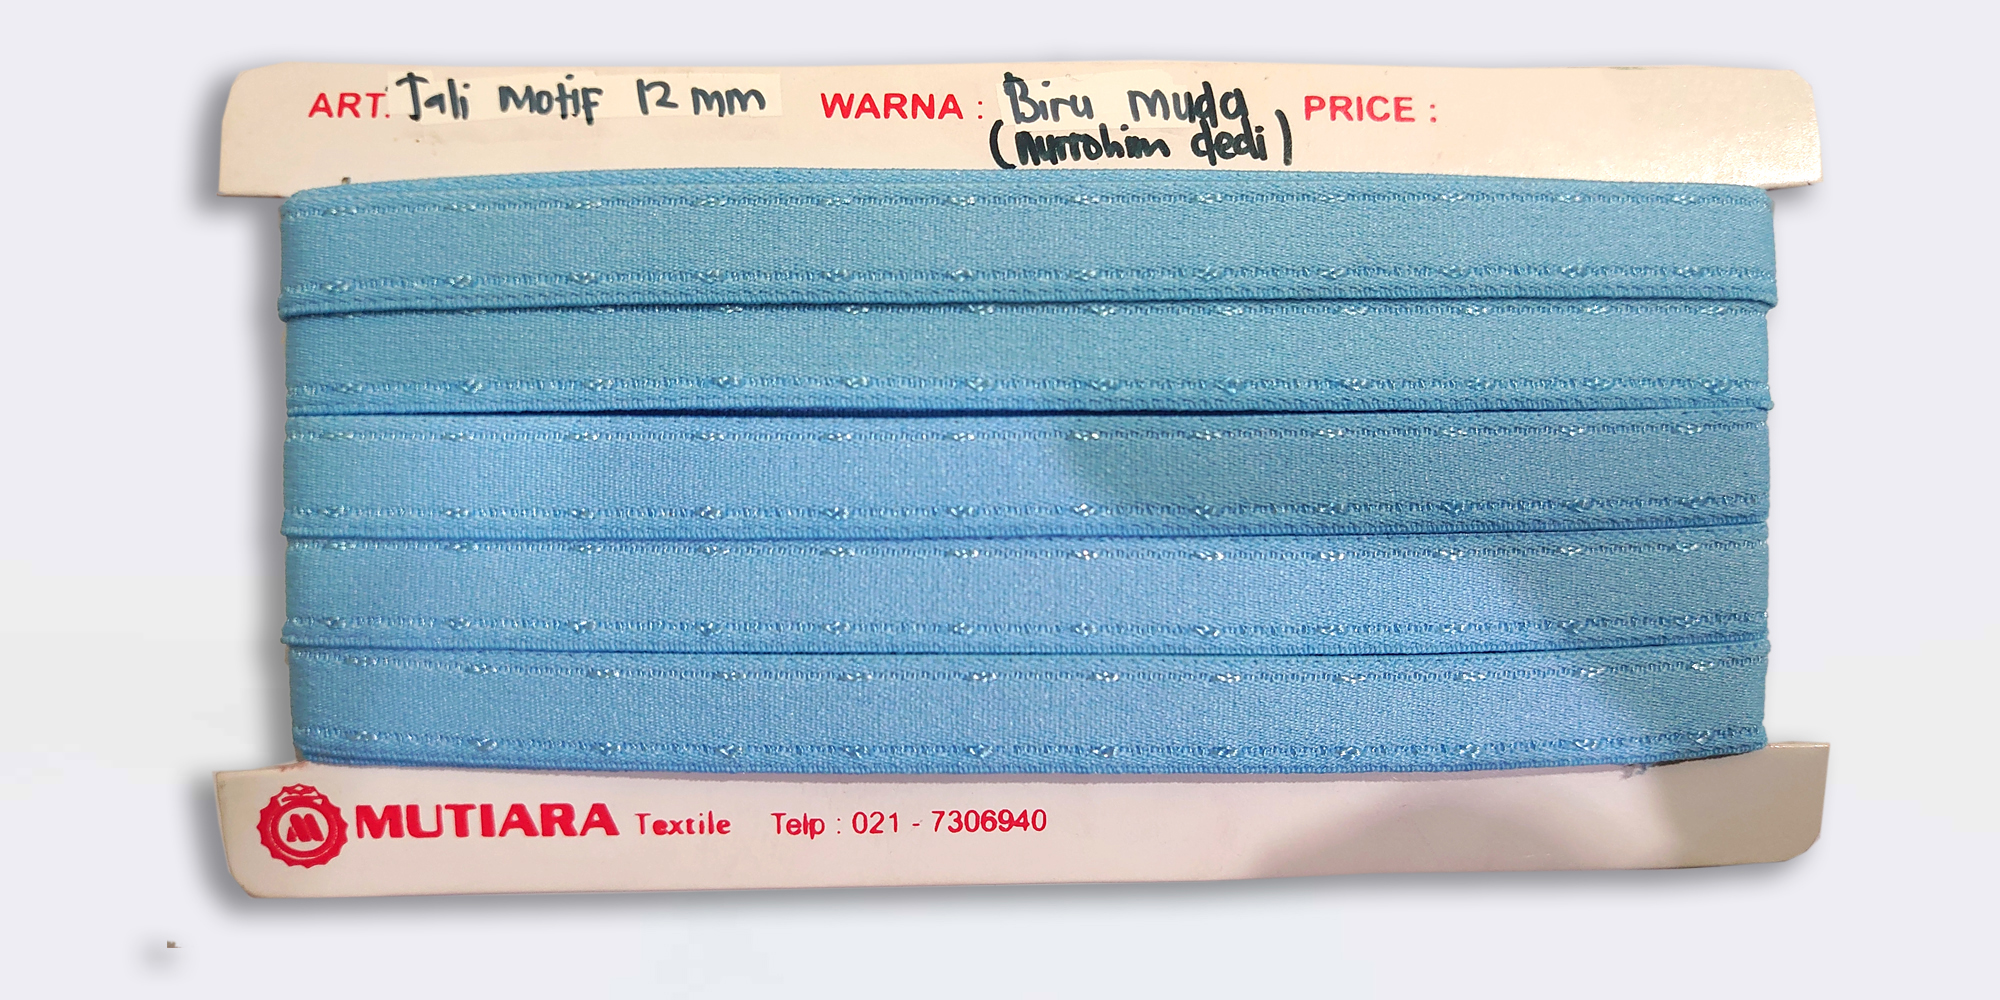 ART: Tali Motif 12 mm WARNA : Biru muda PRICE :
(nurrohim dedi)
MUTIARA Textile Telp : 021 - 7306940